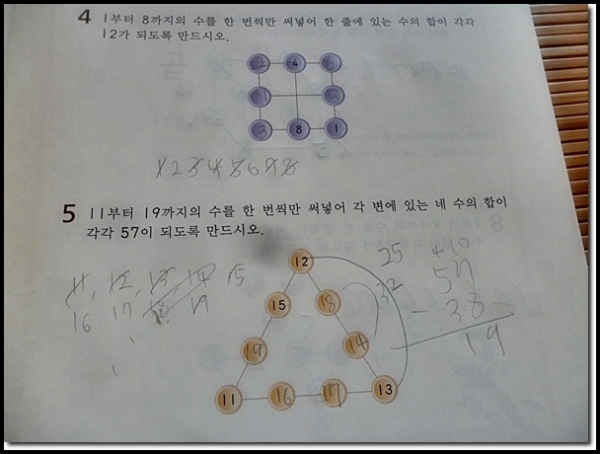 4 1부터 8까지의 수를 한 번씩만 써넣어 한 줄에 있는 수의 합이 각각
12가 되도록 만드시오.
4
8 1
1 2 3 4 5 6 7 8
5 11부터 19까지의 수를 한 번씩만 써넣어 각 변에 있는 네 수의 합이
각각 57이 되도록 만드시오.
12
25 4 10
11, 12, 13 14 15
32 57
16 17 18 19
15 18
- 38
19 14
19
11 16 17 13